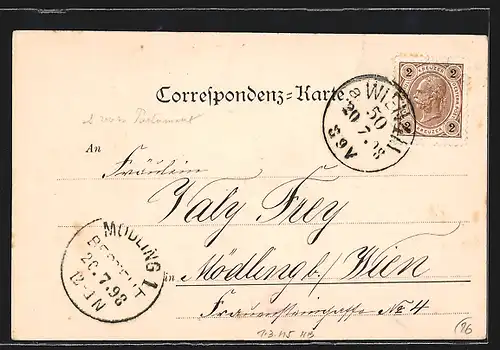 Correspondenz=Karte
2 KREUZER 2
2 KREUZER 2
WIEN
50
20.7.98
8.9V
An
Fräulein
Valy Frey
in Mödling b/ Wien
No 4
MÖDLING 1
BESTELLT
20.7.98
12-1N
96